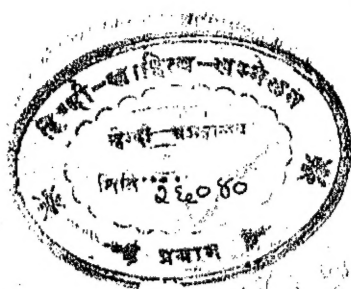 हिन्दी-साहित्य-सम्मेलन
हिन्दी संग्रहालय
तिथि.....२६०४०
प्रयाग